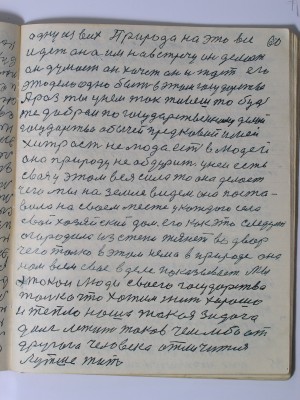 одну из них Природа на это все 60
идет она им навстречу он делает
он думает он хочет он и ждет его
это дело одно быть в этом государстве
А раз ты у нем то живеш то будь
те добры по государственному
государство
хитрост не мода ест в людей
она природу не обдурит у неи есть
свои у этом вся сила то она делает
чего мы на земле видем она поста-
вила на своем месте у каждого село
свои хозяйский дом его как это следует
огородила из степи тянет во двор
чего только в этом нема в природе она
нам всем свое в деле показывает Мы
такои люди своего государства
только что хотим жит хорошо
и тепло наша такая задача
долг лежит таков чем либо от
другого человека отличится
лутше жить